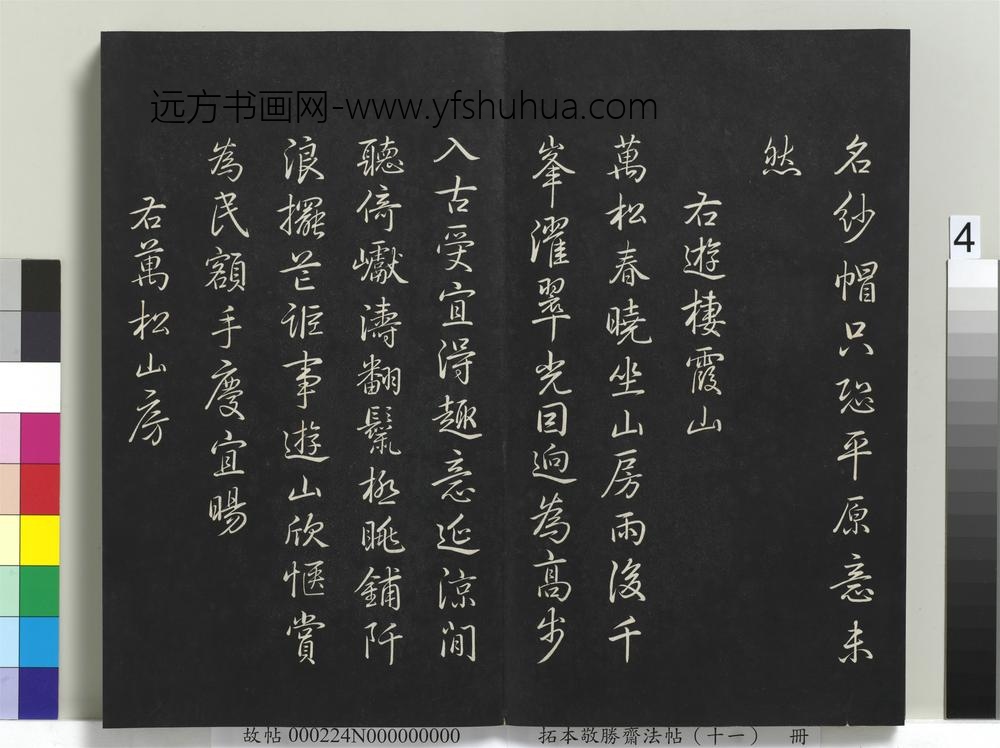 远方书画网-www.yfshuhua.com
名紗帽只恐平原意未
然
右遊棲霞山
萬松春曉坐山房雨後千
峯濯翠光因逈為高步
入古受宜得趣意延涼閒
聽倚巘濤翻鬣極眺鋪阡
浪擺芒詎事遊山欣愜賞
為民額手慶宜暘
右萬松山房
4
故帖 000224N000000000
拓本敬勝齋法帖（十一） 冊